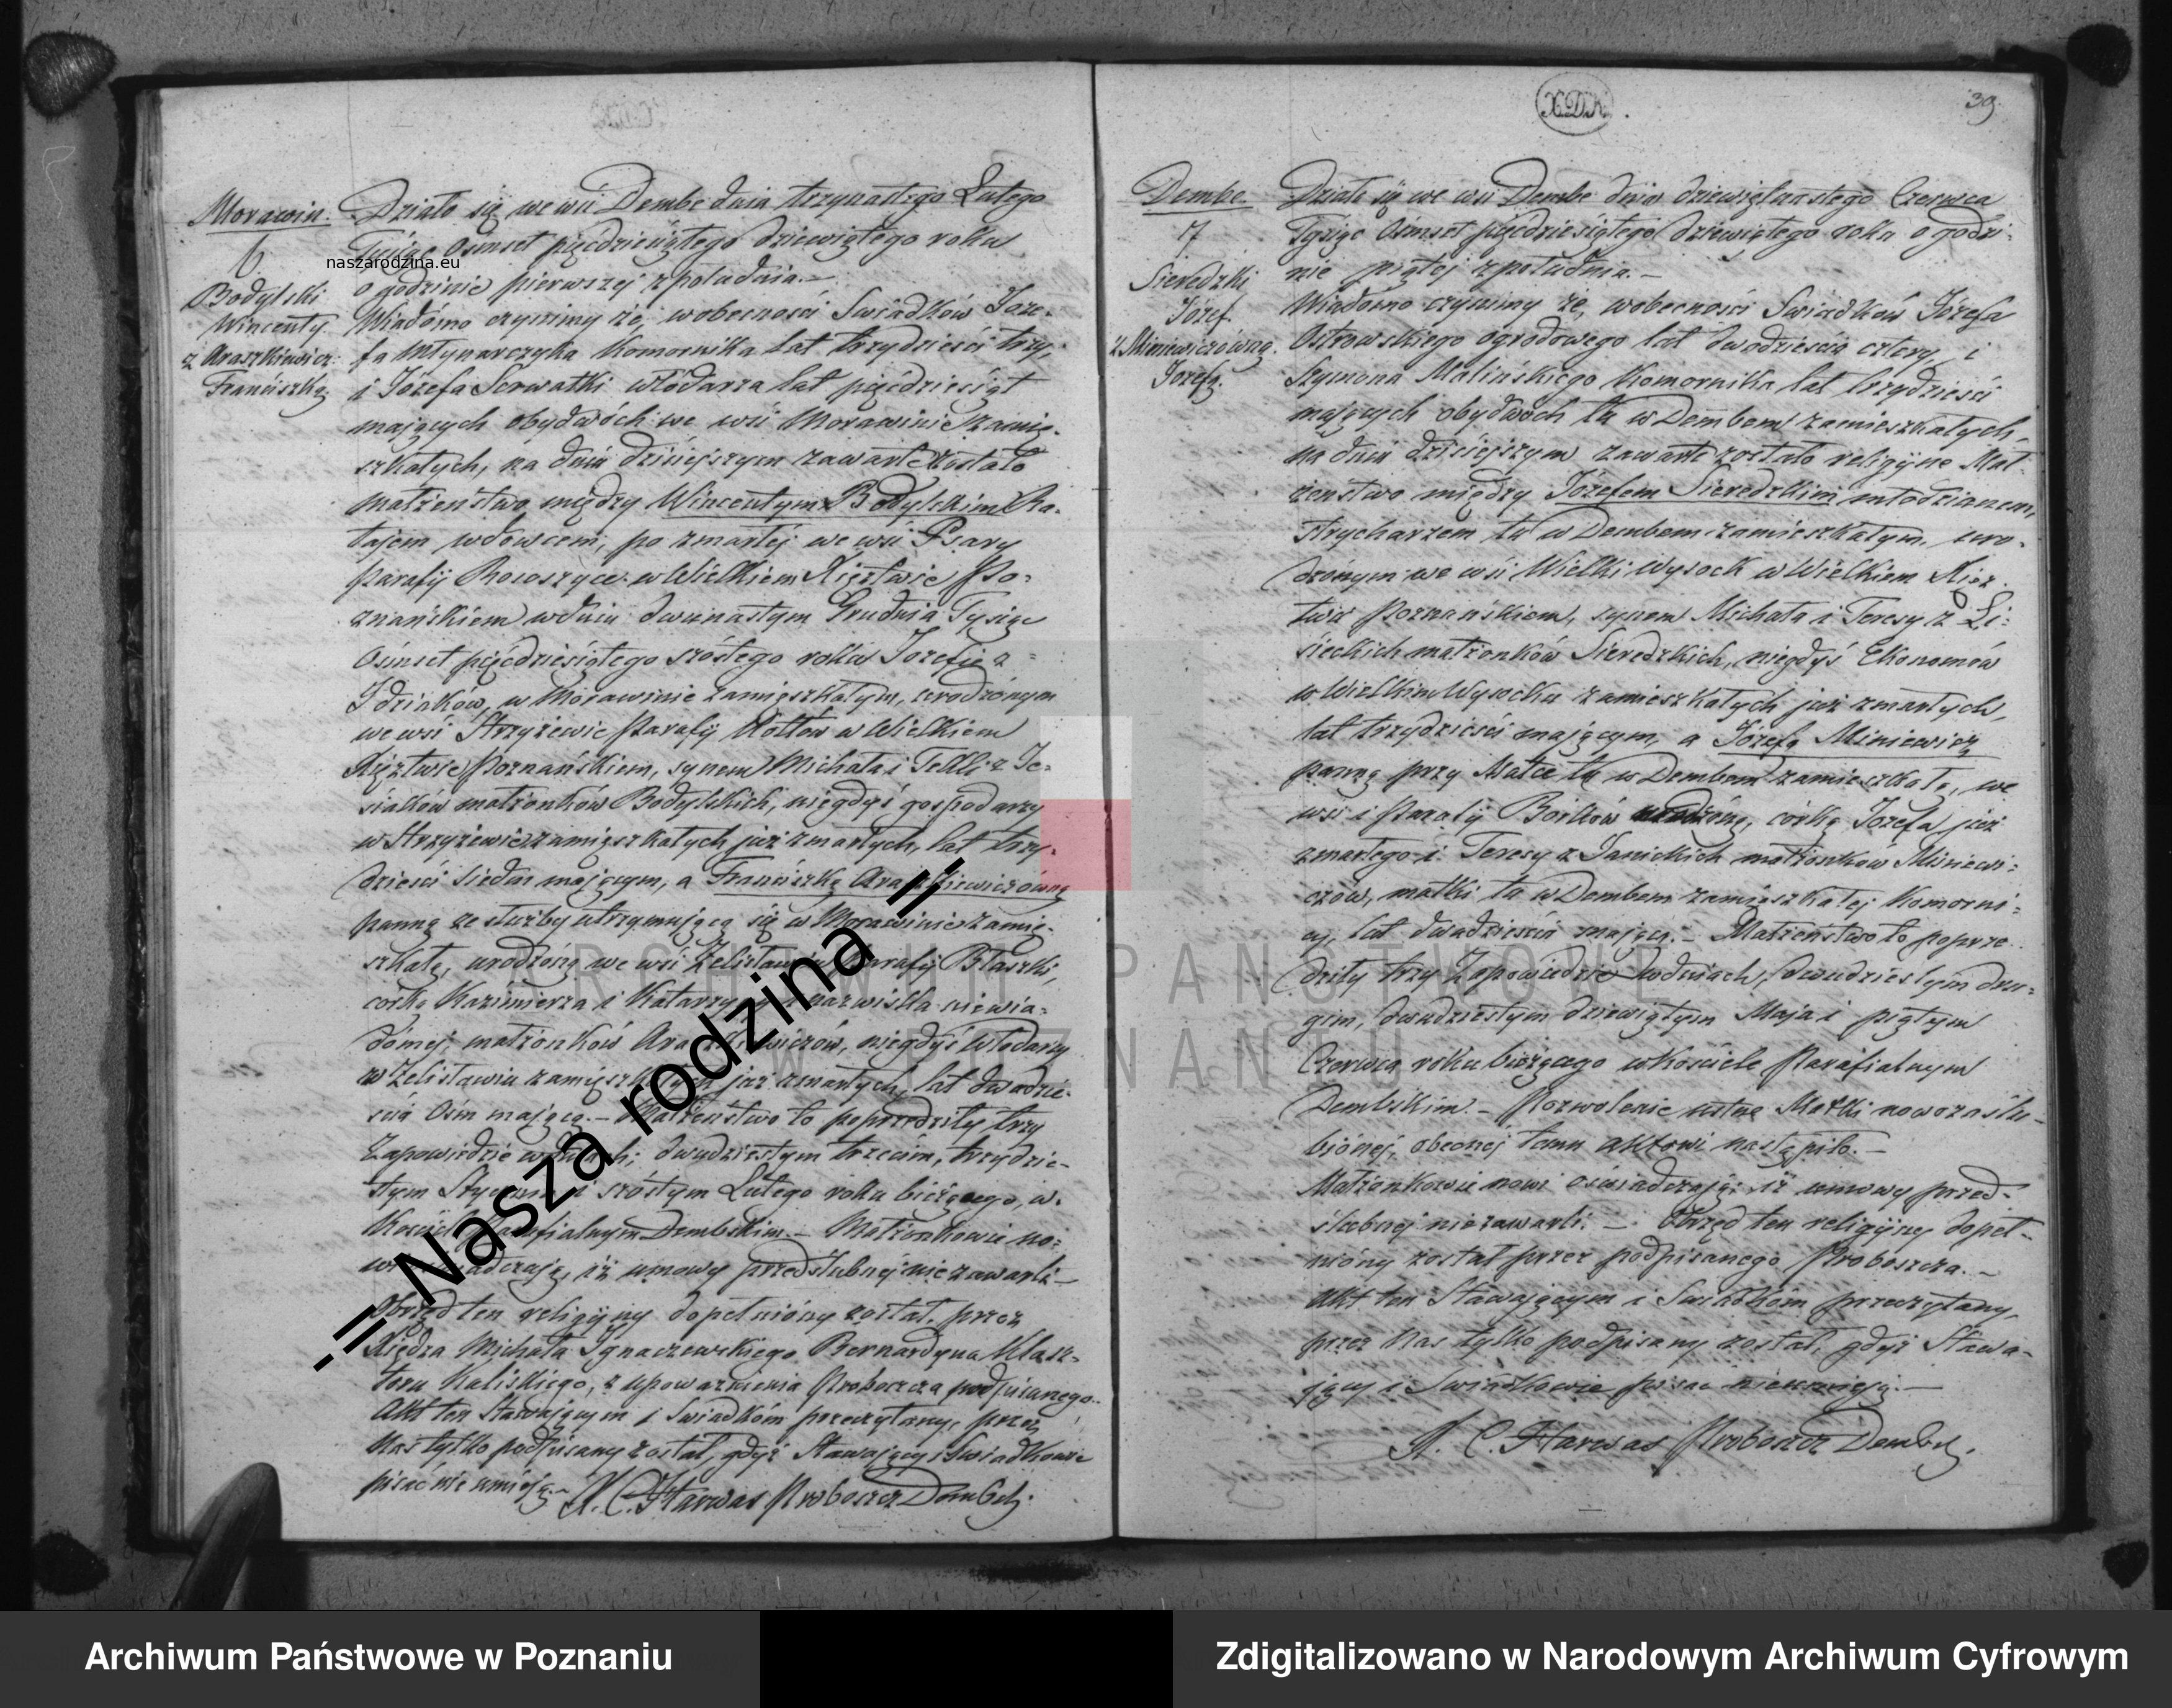 Morawin.
6
Bodylski
Wincenty
z Araszkiewicz:
Franciszką
naszarodzina.eu
Działo się we wsi Dembe dnia trzynastego Lutego
Tysiąc Osimset pięćdziesiątego dziewiątego roku
o godzinie pierwszej z południa.—
Wiadomo czynimy że, wobecności Swiadków Józe-
fa Młynarczyka Komornika lat trzydzieści trzy,
i Józefa Serwatki włódarza lat pięćdziesiąt
mających obydwóch we wsi Morawinie zamię-
szkałych, na dniu dzisiejszym zawarte zostało
małżeństwo między Wincentym Bodylskim Ra-
tajem wdowcem, po zmarłej we wsi Psary
Parafij Rososzyce w Wielkiem Xięztwie Po-
znańskiem w dniu dwunastym Grudnia Tysiąc
Osimset pięćdziesiątego szóstego roku Józefie z
Idziaków, w Morawinie zamięszkałym, urodzonym
we wsi Strzyżewie Parafij Kotłow w Wielkiem
Xięztwie Poznańskiem, synem Michała i Tekli z Je-
siaków małżonków Bodylskich, niegdyś gospodarzy
w Strzyżewie zamięszkałych już zmarłych, lat trzy-
dzieści siedm mającym, a Franciszką Araszkiewiczówną
panną ze służby utrzymującą się w Morawinie zamię-
szkałą, urodzoną we wsi Żelisławiu Parafij Błaszki,
córką Kazimierza i Katarzyny z nazwiska niewia-
domej, małżonków Araszkiewiczów, niegdyś Włodarzy
w Żelisławiu zamięszkałych już zmarłych, lat dwadzie-
ścia Ośm mającą.— Małżeństwo to poprzedziły trzy
Zapowiedzie w dniach; dwudziestym trzecim, trzydzie-
stym Stycznia i szóstym Lutego roku bieżącego, w
Kościele Parafialnym Dembskim.— Małżonkowie no-
wi oświadczają, iż umowy przedślubnej nie zawarli.—
Obrzęd ten religijny dopełniony został, przez
Xiędza Michała Ignaczewskiego Bernardyna Klasz-
toru Kaliskiego, z upoważnienia Proboszcza podpisanego.
Akt ten Stawającym i Swiadkóm przeczytany, przez
Nas tylko podpisany został, gdyż Stawający i Swiadkowie
pisać nie umieją.— X. C. Harwas Proboszcz Dembsk.
X.D.K.
39.
Dembe
7
Sieredzki
Józef
z Miniewiczówną
Józefą.
Działo się we wsi Dembe dnia dziewiętnastego Czerwca
Tysiąc Osimset pięćdziesiątego dziewiątego roku o godzi-
nie piątej z południa.—
Wiadomo czynimy że, wobecności Swiadków Józefa
Ostrowskiego ogrodowego lat dwadzieścia cztery, i
Szymona Malińskiego Komornika lat trzydzieści
mających obydwóch tu w Dembem zamieszkałych,
na dniu dzisiejszym zawarte zostało religijne Mał-
żeństwo między Józefem Sieredzkim młodzianem,
Strycharzem tu w Dembem zamieszkałym, uro-
dzonym we wsi Wielki Wysock w Wielkiem Xięz-
twie Poznańskiem, synem Michała i Teresy z Li-
sieckich małżonków Sieredzkich, niegdyś Ekonomów
w Wielkim Wysocku zamieszkałych już zmarłych,
lat trzydzieści mającym, a Józefą Miniewicz
panną przy Matce tu w Dembem zamieszkałą, we
wsi i Parafij Borków urodzoną, córką Józefa już
zmarłego i Teresy z Janickich małżonków Miniewi-
czów, matki tu w Dembem zamięszkałej Komorni-
cy, lat dwadzieścia mającą.— Małżeństwo to poprze-
dziły trzy Zapowiedzie w dniach, dwudziestym dru-
gim, dwudziestym dziewiątym Maja i piątym
Czerwca roku bieżącego w Kościele Parafialnym
Dembskim.— Pozwolenie ustne Matki nowozaślu-
bionej, obecnej temu aktowi nastąpiło.—
Małżonkowie nowi oświadczają, iż umowy przed-
ślubnej niezawarli.— Obrzęd ten religijny dopeł-
niony został przez podpisanego Proboszcza.—
Akt ten Stawającym i Swiadkóm przeczytany,
przez Nas tylko podpisany został, gdyż Stawa-
jący i Swiadkowie pisać nieumieją.—
X. C. Harwas Proboszcz Dembsk.
-=Nasza rodzina=-
ARCHIWUM PAŃSTWOWE
W POZNANIU
Archiwum Państwowe w Poznaniu
Zdigitalizowano w Narodowym Archiwum Cyfrowym